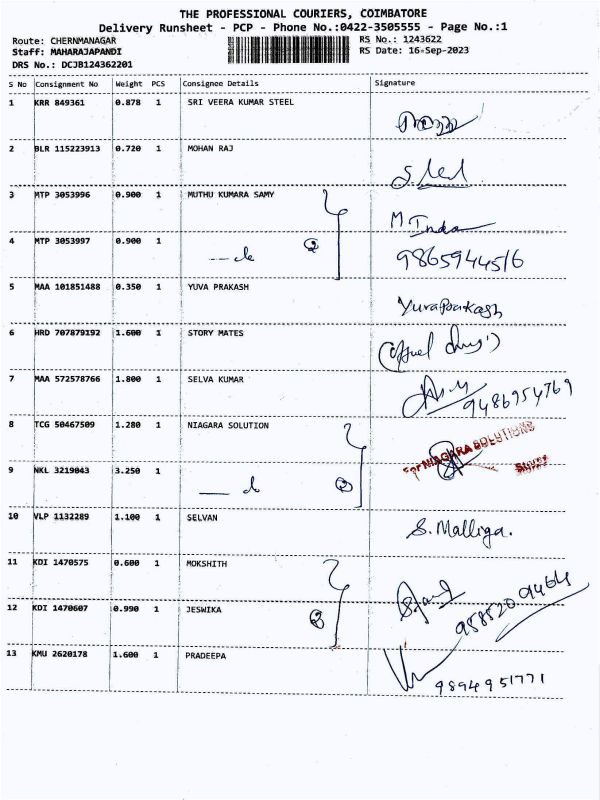 THE PROFESSIONAL COURIERS, COIMBATORE
Delivery Runsheet - PCP - Phone No.:0422-3505555 - Page No.:1
Route: CHERNMANAGAR RS No.: 1243622
Staff: MAHARAJAPANDI RS Date: 16-Sep-2023
DRS No.: DCJB124362201
S No Consignment No Weight PCS Consignee Details Signature
1 KRR 849361 0.878 1 SRI VEERA KUMAR STEEL
2 BLR 115223913 0.720 1 MOHAN RAJ
3 MTP 3053996 0.900 1 MUTHU KUMARA SAMY M Indra
4 MTP 3053997 0.900 1 do 2 9865944516
5 MAA 101851488 0.350 1 YUVA PRAKASH Yuvaprakash
6 HRD 707879192 1.600 1 STORY MATES
7 MAA 572578766 1.800 1 SELVA KUMAR 9486954769
8 TCG 50467509 1.280 1 NIAGARA SOLUTION For NIAGARA SOLUTIONS
9 NKL 3219043 3.250 1 do 2
10 VLP 1132289 1.100 1 SELVAN S. Malliga.
11 KDI 1470575 0.600 1 MOKSHITH
12 KDI 1470607 0.990 1 JESWIKA 2 9585209464
13 KMU 2620178 1.600 1 PRADEEPA 9894951771